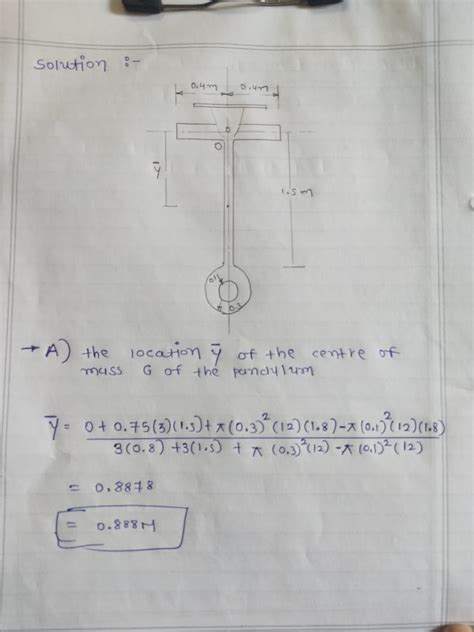 Solution :-
0.4m 0.4m
O
ȳ
1.5m
0.1
0.3
→ A) the location ȳ of the centre of
mass G of the pendylum
ȳ = 0 + 0.75(3)(1.5) + π(0.3)²(12)(1.8) - π(0.1)²(12)(1.8)
3(0.8) + 3(1.5) + π (0.3)²(12) - π(0.1)²(12)
= 0.8878
= 0.888M